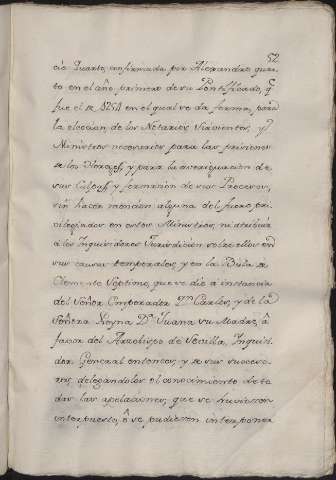 52
cio Quarto, confirmada por Alexandro quar-
to en el año primero de su Pontificado, q̃
fue el de 1254 en el qual se da forma, para
la eleccion de los Notarios sirvientes, y
Ministros necesarios para las priciones
de los Hereges, y para la averiguacion de
sus Culpas, y formacion de sus Procesos,
sin hacer mencion alguna del fuero pri-
vilegiado en estos Ministros, ni atribuir
a los Inquisidores Jurisdicion sobre ellos en
sus causas temporales, y en la Bula de
Clemente Septimo, que se dio a instancia
del Señor Emperador Dn. Carlos, y de la
Señora Reyna Da. Juana su Madre, â
favor del Arzobispo de Sevilla, Inquisi-
dor General entonces, y de sus succeso-
res, delegandolos el conocimiento de to-
das las apelaciones, que se huviesen
interpuesto, ô se pudiesen interponer